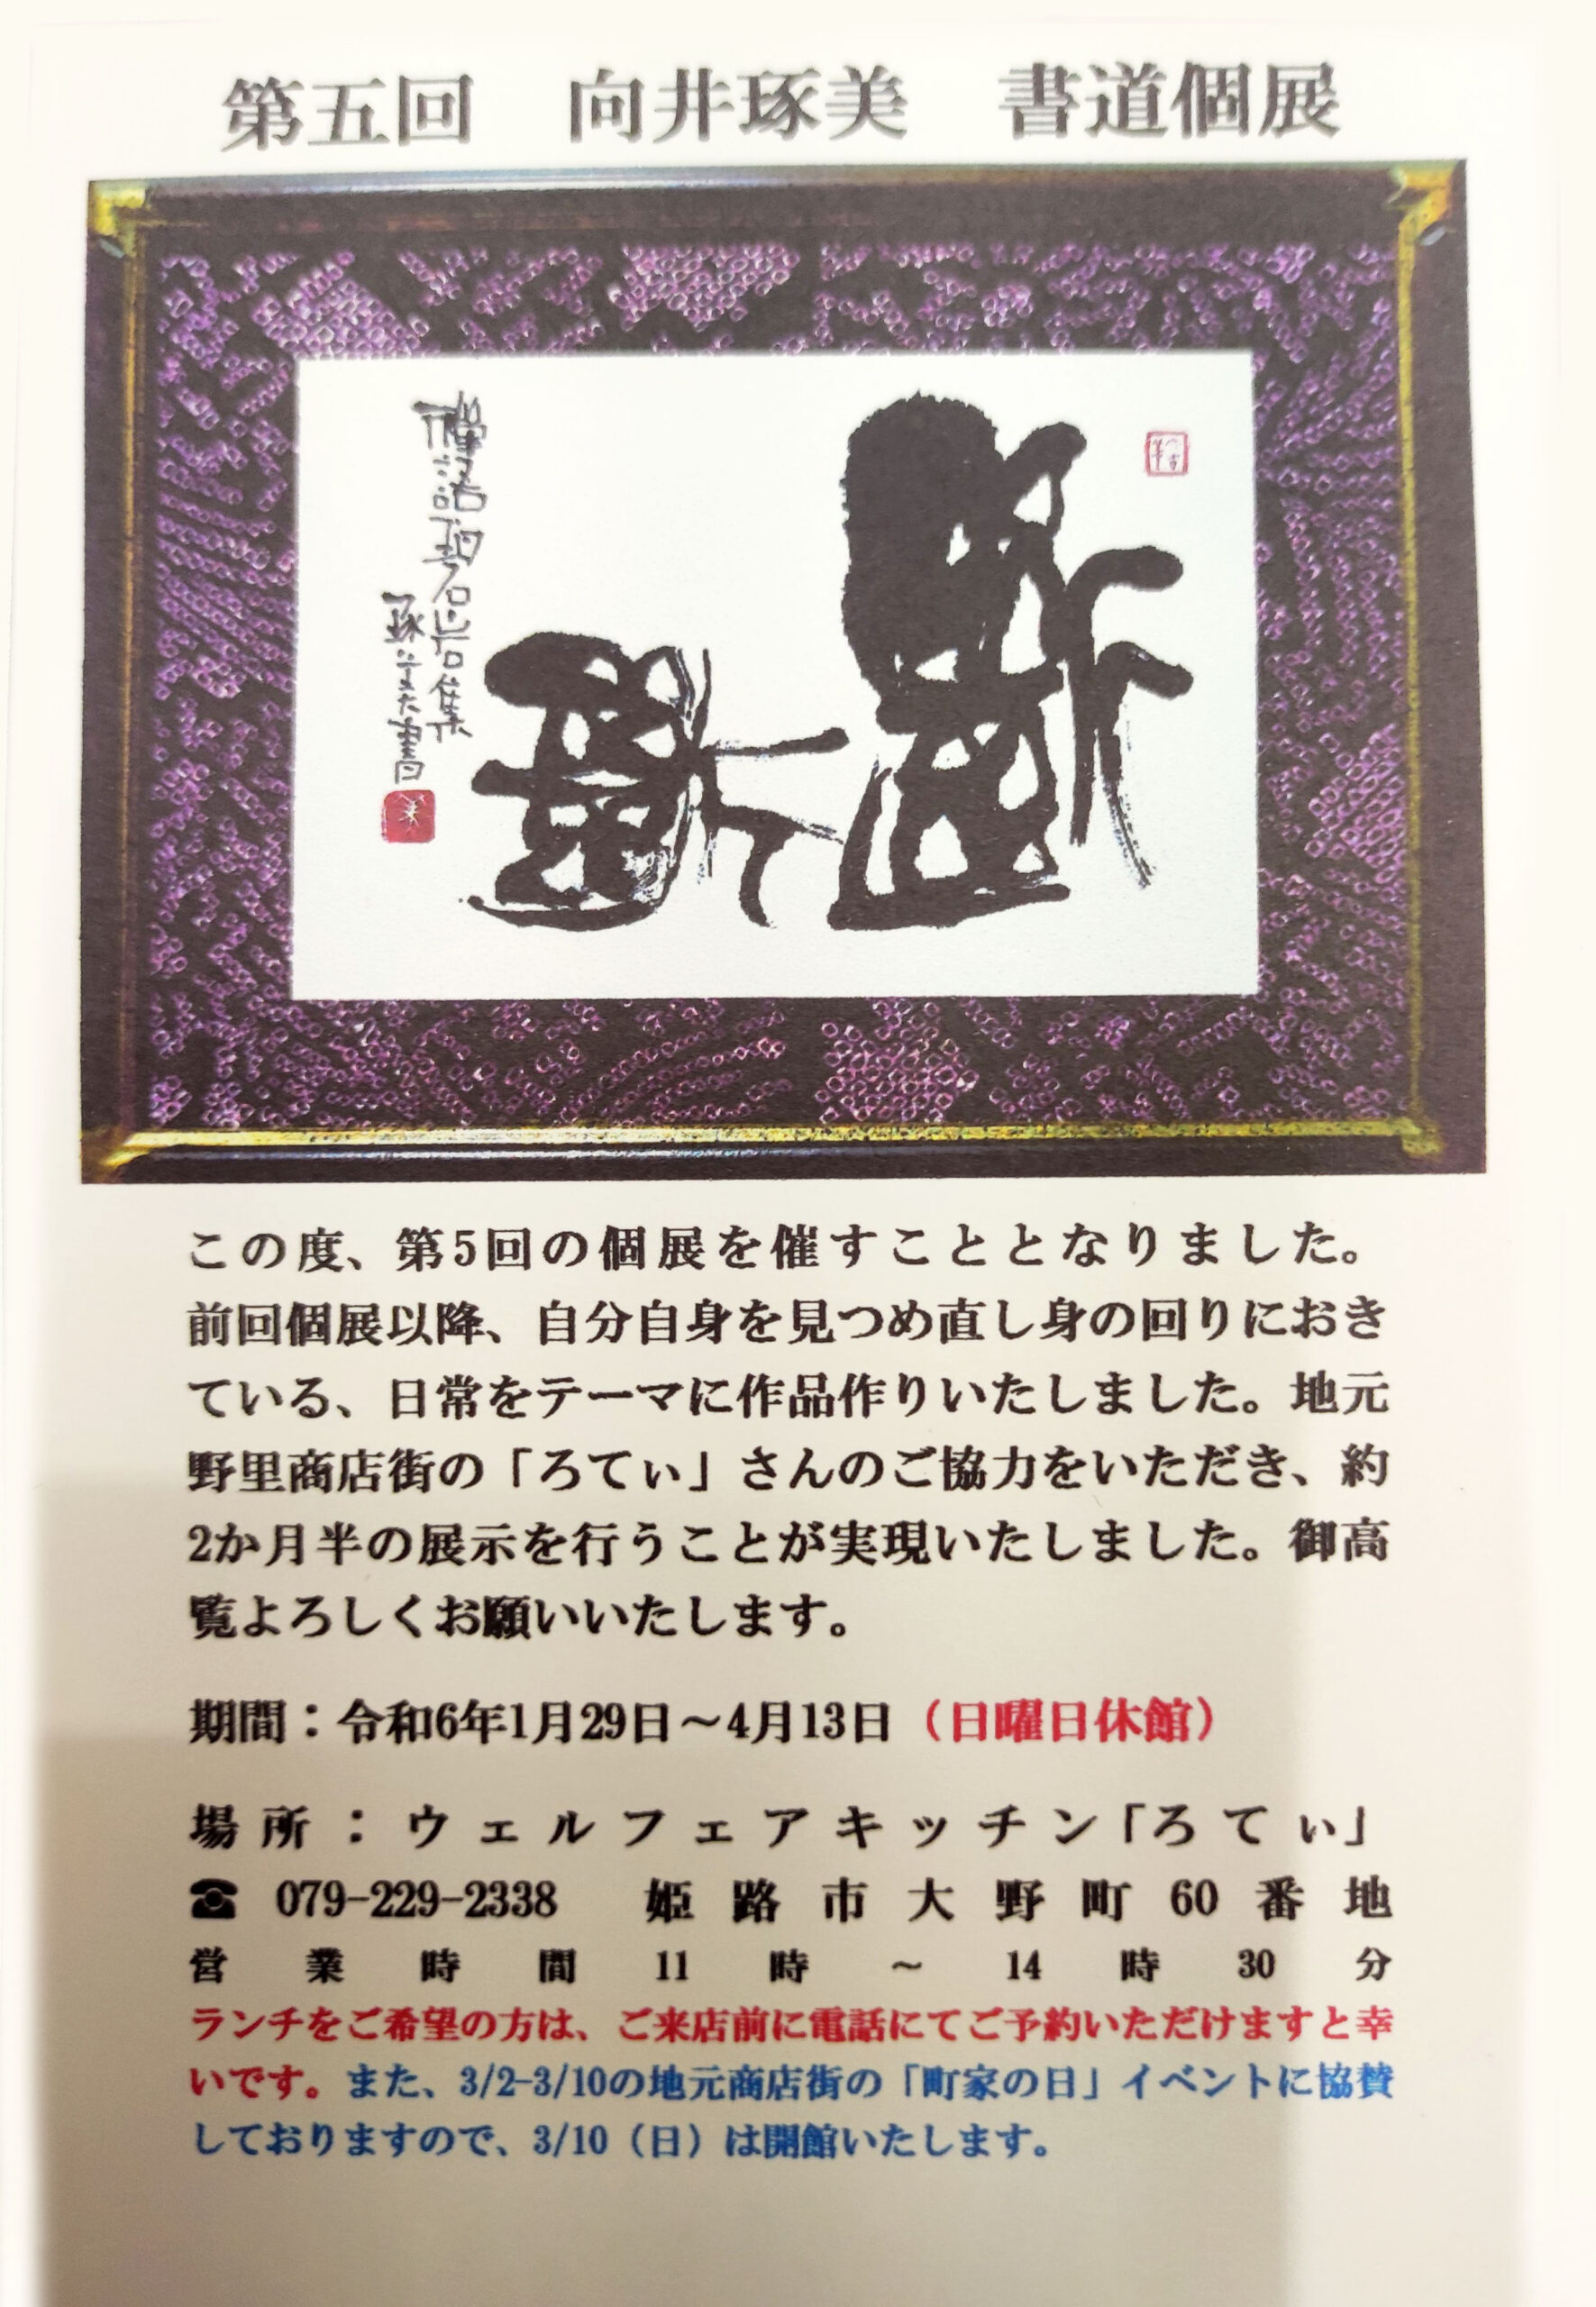 第五回　向井琢美　書道個展
琢美書
この度、第5回の個展を催すこととなりました。
前回個展以降、自分自身を見つめ直し身の回りにおき
ている、日常をテーマに作品作りいたしました。地元
野里商店街の「ろてぃ」さんのご協力をいただき、約
2か月半の展示を行うことが実現いたしました。御高
覧よろしくお願いいたします。
期間：令和6年1月29日～4月13日（日曜日休館）
場所：ウェルフェアキッチン「ろてぃ」
☎ 079-229-2338　姫路市大野町60番地
営業時間11時～14時30分
ランチをご希望の方は、ご来店前に電話にてご予約いただけますと幸
いです。また、3/2-3/10の地元商店街の「町家の日」イベントに協賛
しておりますので、3/10（日）は開館いたします。